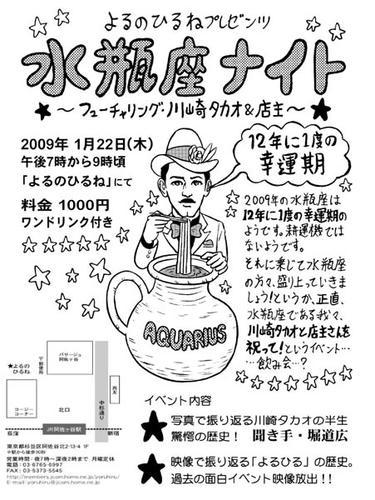 よるのひるねプレゼンツ
水瓶座ナイト
★～フューチャリング・川崎タカオ&店主～★
2009年 1月22日(木)
午後7時から9時頃
「よるのひるね」にて
料金 1000円
ワンドリンク付き
12年に1度の
幸運期
2009年の水瓶座は
12年に1度の幸運期の
ようです。耕運機では
ないようです。
それに乗じて水瓶座
の方々、盛り上っていきま
しょう!というか、正直、
水瓶座である我々、
川崎タカオと店主さんを
祝って!というイベント…
……飲み会…?
AQUARIUS
★よるの
ひるね
パサージュ
阿佐ヶ谷
コージー
コーナー
北口
中杉通り
西友
荻窪
JR阿佐ヶ谷駅
新宿
東京都杉並区阿佐谷北2-13-4 1F
営業時間・夜7時～深夜2時まで 月曜定休
電話 03-6765-6997
FAX 03-5373-5545
イベント内容
★写真で振り返る川崎タカオの半生
驚愕の歴史! 聞き手・堀道広
★映像で振り返る「よるひる」の歴史。
過去の面白イベント映像放出!!